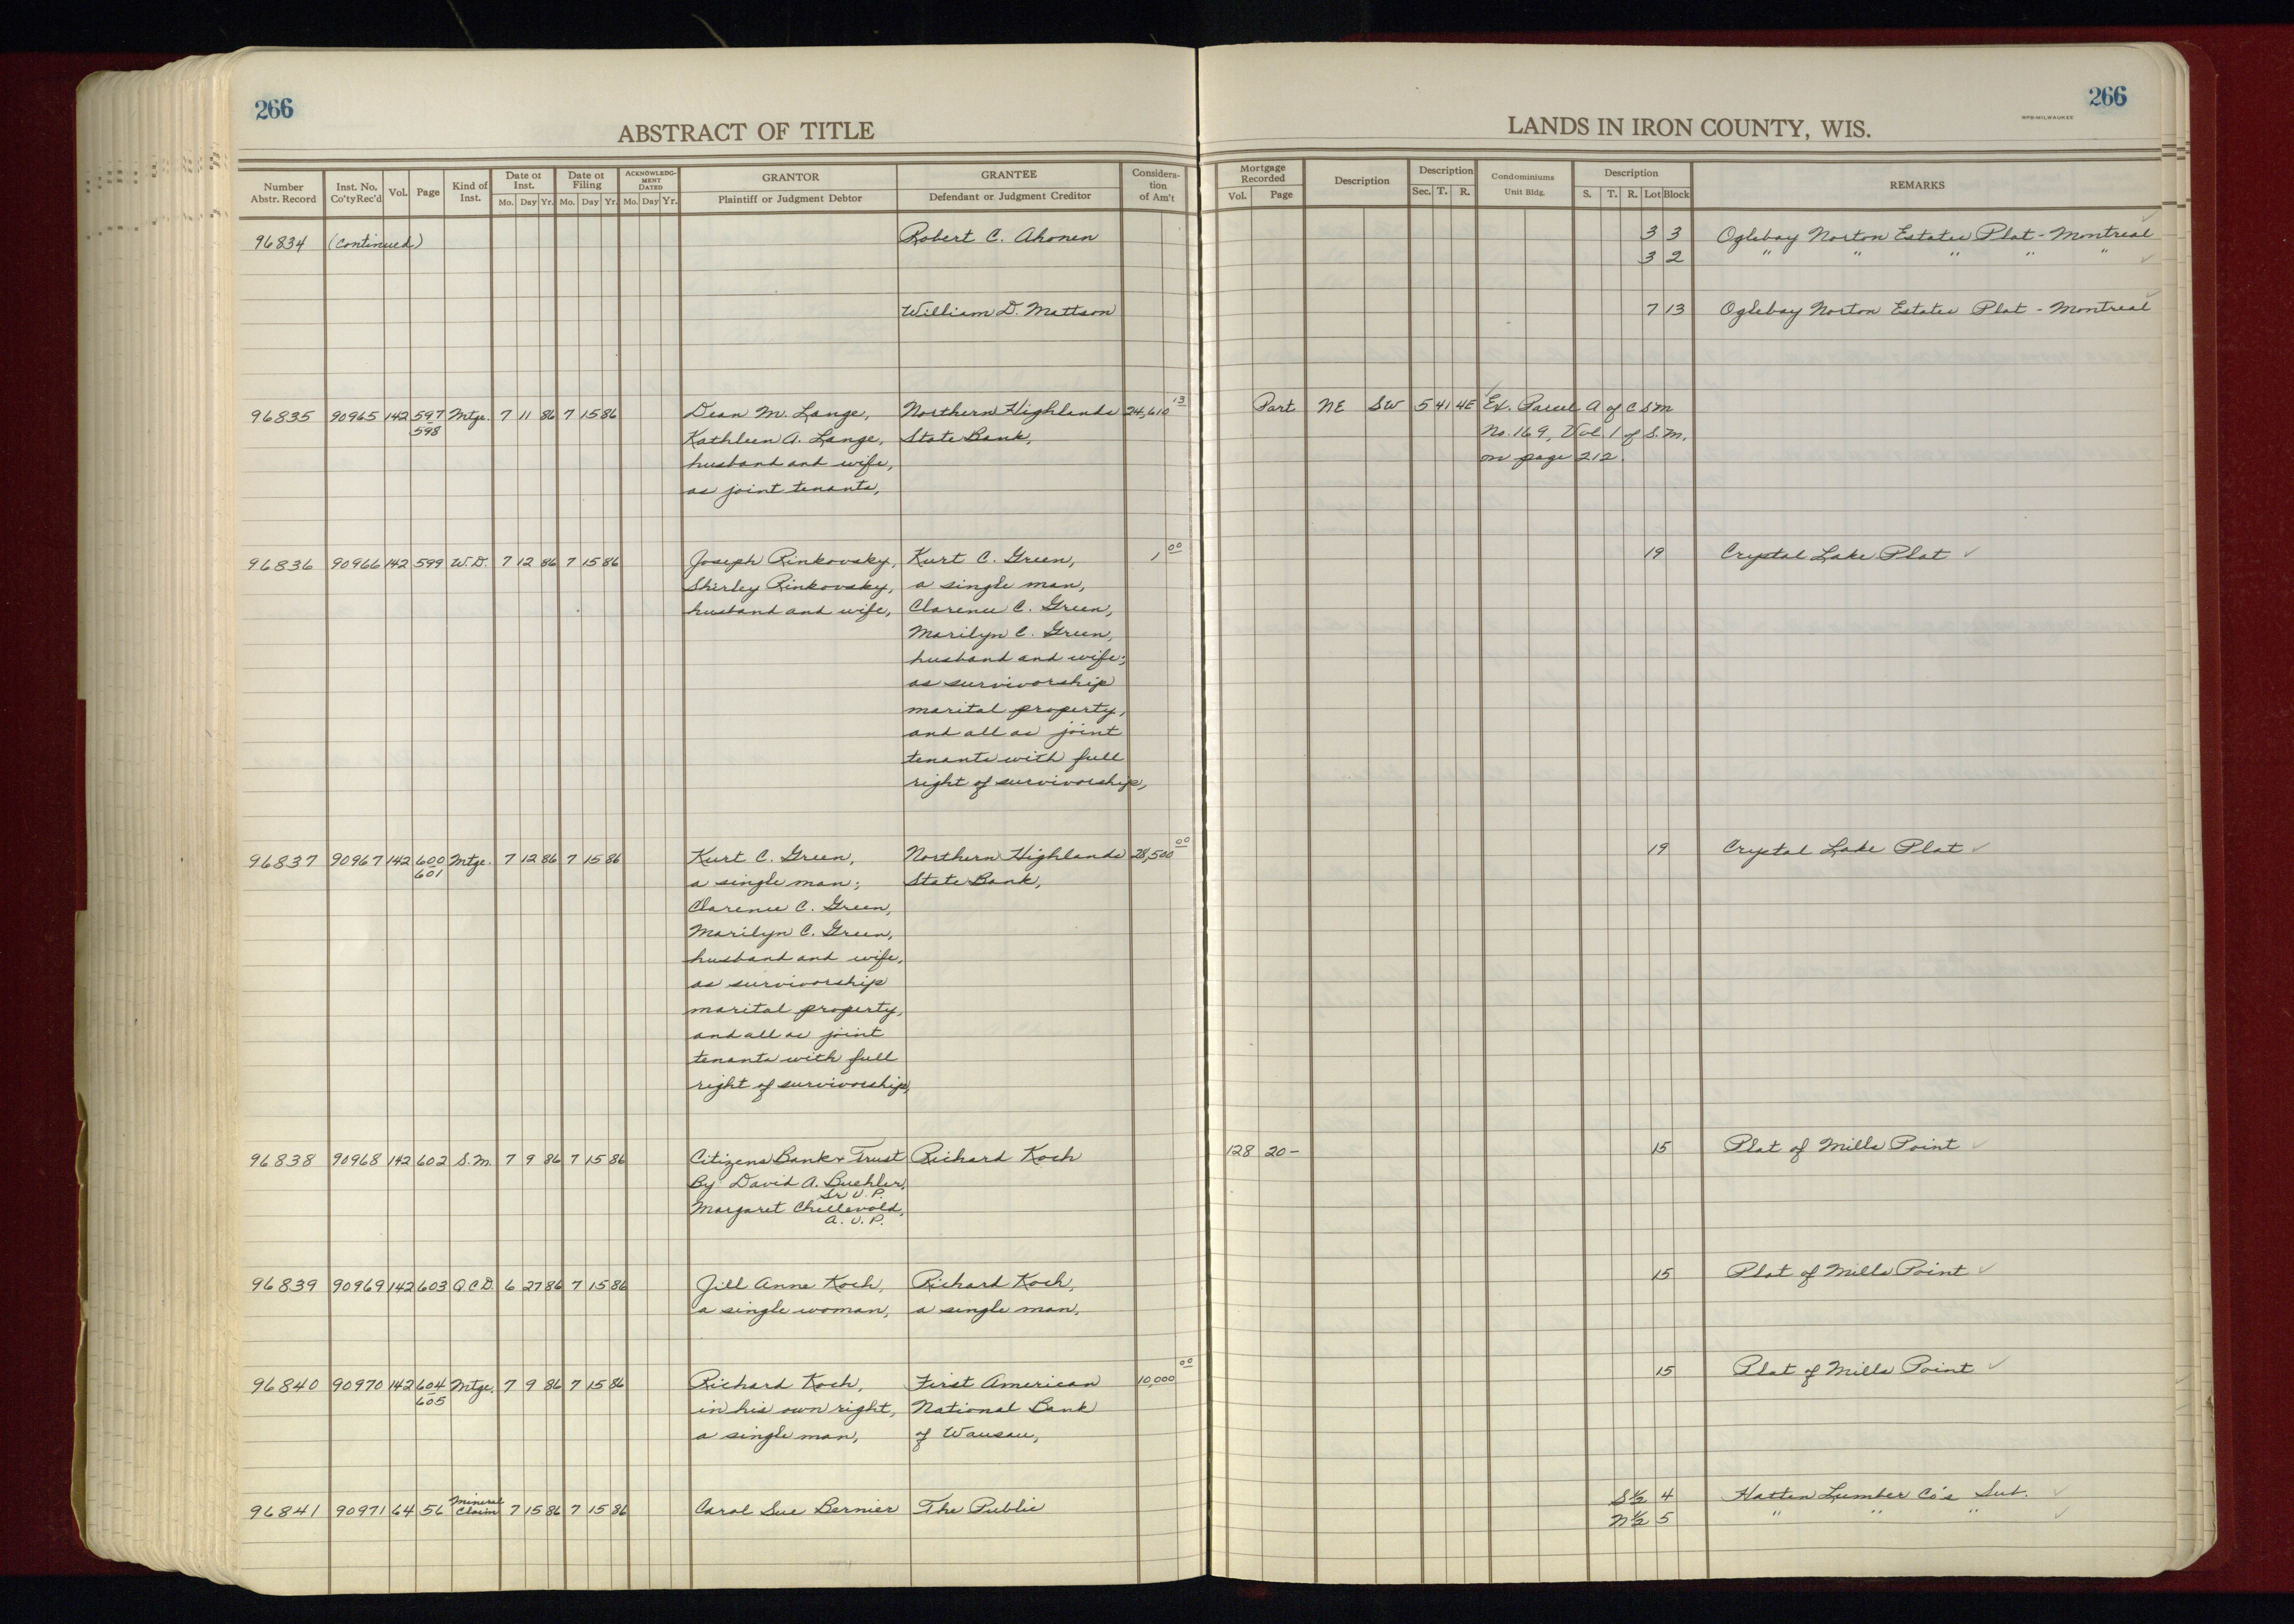 266
ABSTRACT OF TITLE
LANDS IN IRON COUNTY, WIS.
266
Number Abstr. Record
Inst. No. Co'ty Rec'd
Vol.
Page
Kind of Inst.
Date of Inst.
Mo. Day Yr.
Date of Filing
Mo. Day Yr.
ACKNOWLEDGMENT DATED
Mo. Day Yr.
GRANTOR
Plaintiff or Judgment Debtor
GRANTEE
Defendant or Judgment Creditor
Consideration of Am't
Mortgage Recorded
Vol. Page
Description
Description
Sec. T. R.
Condominiums
Unit Bldg.
Description
S. T. R. Lot Block
REMARKS
96834 (continued) Robert C. Ahonen 3 3 Oglebay Norton Estates Plat - Montreal
3 2 " " " " "
William D. Mattson 7 13 Oglebay Norton Estates Plat - Montreal
96835 90965 142 597 Mtge. 7 11 86 7 15 86 Dean M. Lange, Northern Highlands 24,610 13 Part NE SW 5 41 4E Ex. Parcel A of C S M
598 Kathleen A. Lange, State Bank, No. 169, Vol. 1 of S.M.
husband and wife, on page 212.
as joint tenants,
96836 90966 142 599 W.D. 7 12 86 7 15 86 Joseph Rinkovsky, Kurt C. Green, 1 00 19 Crystal Lake Plat ✓
Shirley Rinkovsky, a single man,
husband and wife, Clarence C. Green,
Marilyn C. Green,
husband and wife;
as survivorship
marital property,
and all as joint
tenants with full
right of survivorship,
96837 90967 142 600 Mtge. 7 12 86 7 15 86 Kurt C. Green, Northern Highlands 28,500 00 19 Crystal Lake Plat ✓
601 a single man; State Bank,
Clarence C. Green,
Marilyn C. Green,
husband and wife,
as survivorship
marital property,
and all as joint
tenants with full
right of survivorship,
96838 90968 142 602 S.M. 7 9 86 7 15 86 Citizens Bank + Trust Richard Koch 128 20- 15 Plat of Mills Point ✓
By David A. Buehler,
Sr V. P.
Margaret Chellevold,
A. V. P.
96839 90969 142 603 Q.C.D. 6 27 86 7 15 86 Jill Anne Koch, Richard Koch, 15 Plat of Mills Point ✓
a single woman, a single man,
96840 90970 142 604 Mtge. 7 9 86 7 15 86 Richard Koch, First American 10,000 00 15 Plat of Mills Point ✓
605 in his own right, National Bank
a single man, of Wausau,
96841 90971 64 56 Mineral Claim 7 15 86 7 15 86 Carol Sue Bernier The Public S½ 4 Hatten Lumber Co's Sub. ✓
N½ 5 " " " ✓